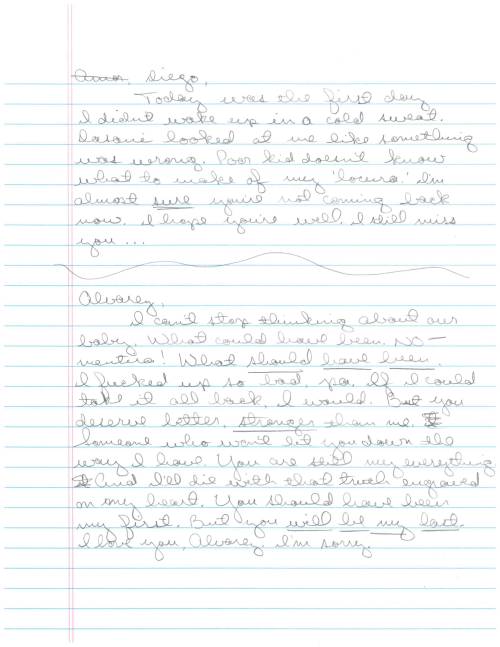 Amor, Diego,
Today was the first day
I didn't wake up in a cold sweat.
looked at me like something
was wrong. Poor kid doesn't know
what to make of my 'locura.' I'm
almost sure you're not coming back
now. I hope you're well. I still miss
you...
Alvarez,
I can't stop thinking about our
baby. What could have been. NO—
mentira! What should have been.
I fucked up so bad, pa. If I could
take it all back, I would. But you
deserve better, stronger than me.
Someone who won't let you down the
way I have. You are still my everything
And I'll die with that truth engraved
on my heart. You should have been
my first. But you will be my last.
I love you, Alvarez. I'm sorry.